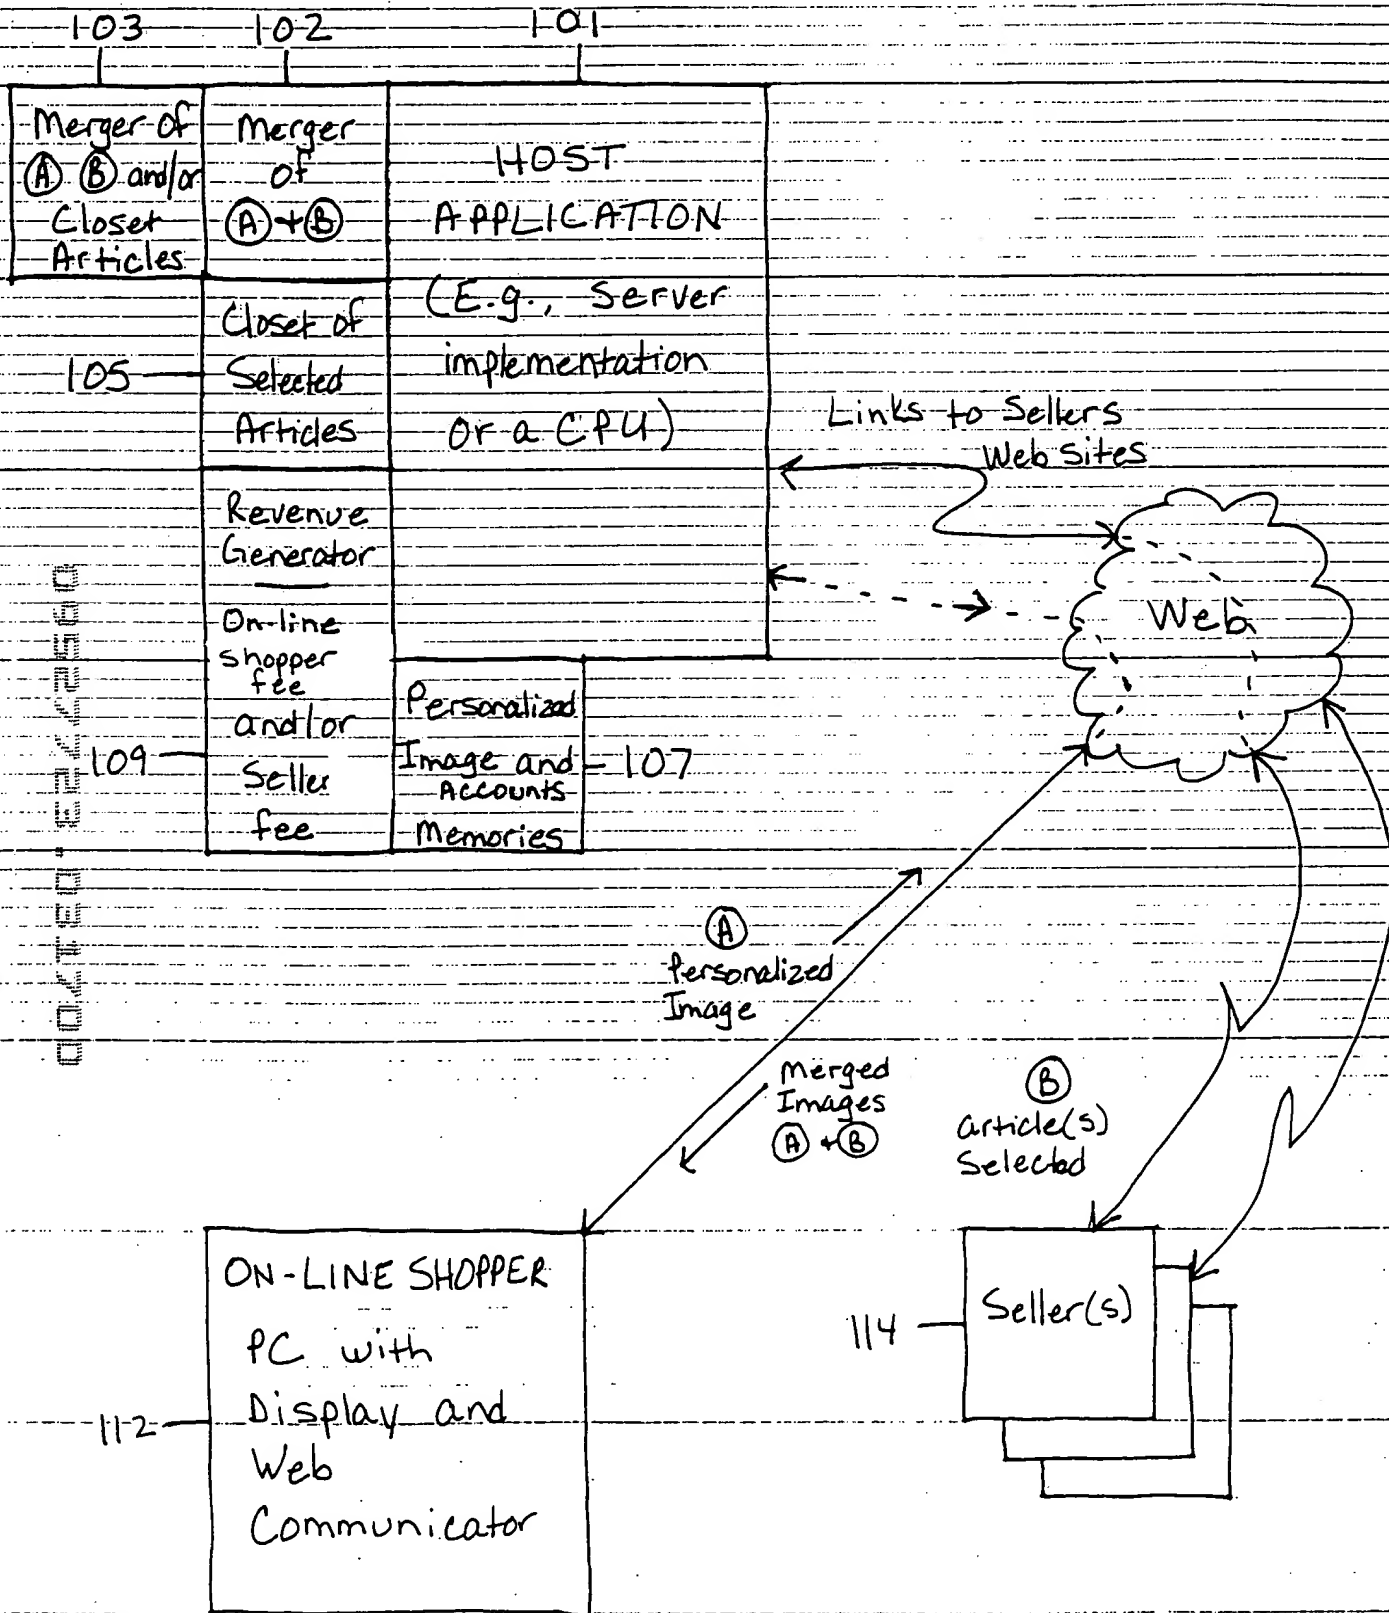 103
102
101
Merger of
Ⓐ Ⓑ and/or
Closet
Articles
Merger
of
Ⓐ+Ⓑ
HOST
APPLICATION
(E.g., Server
implementation
or a CPU)
105
Closet of
Selected
Articles
Links to Sellers
Web Sites
Revenue
Generator
On-line
shopper
fee
and/or
Seller
fee
109
Personalized
Image and
Accounts
Memories
107
Web
Ⓐ
Personalized
Image
Merged
Images
Ⓐ+Ⓑ
Ⓑ
article(s)
Selected
ON-LINE SHOPPER
PC with
Display and
Web
Communicator
112
Seller(s)
114